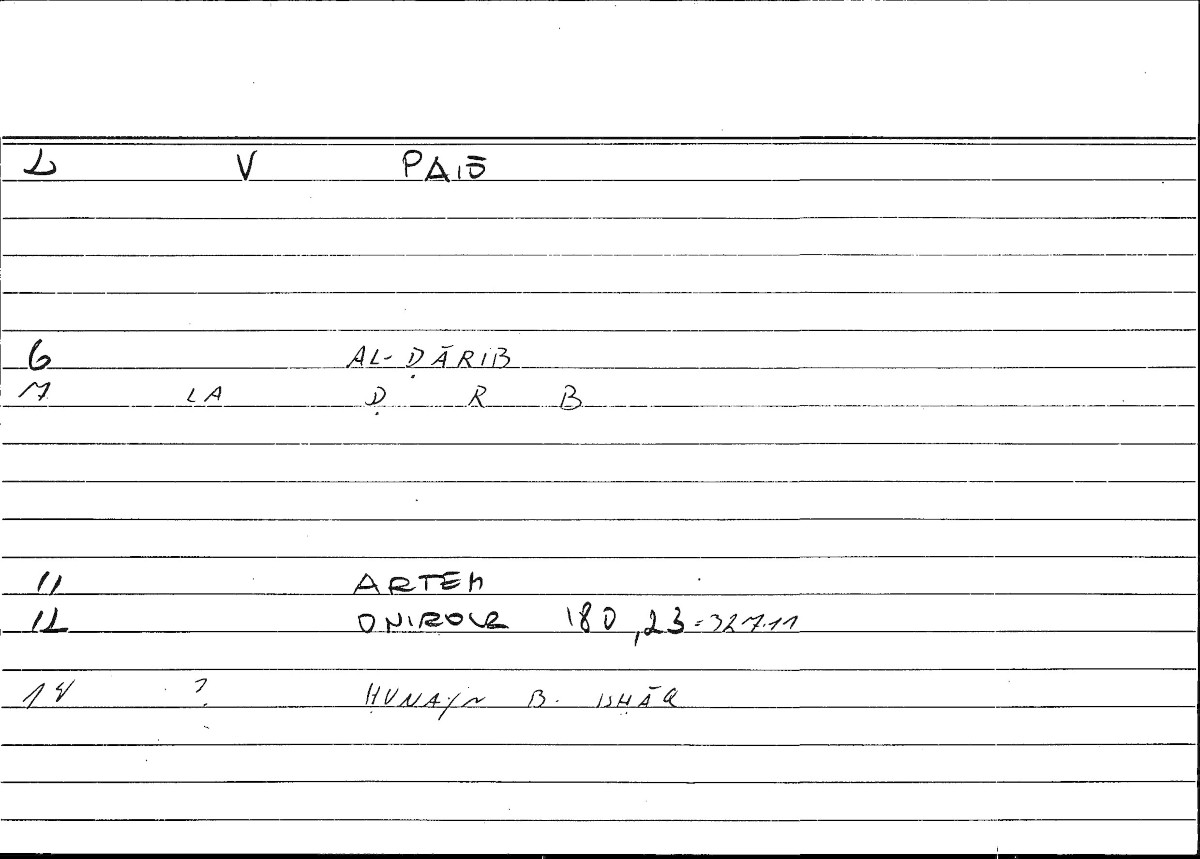 2 V PAIŌ
6 AL-ḌĀRIB
7 LA Ḍ R B
11 ARTEM
12 ONIROCR 180,23=327.11
14 ? ḤUNAYN B. ISḤĀQ